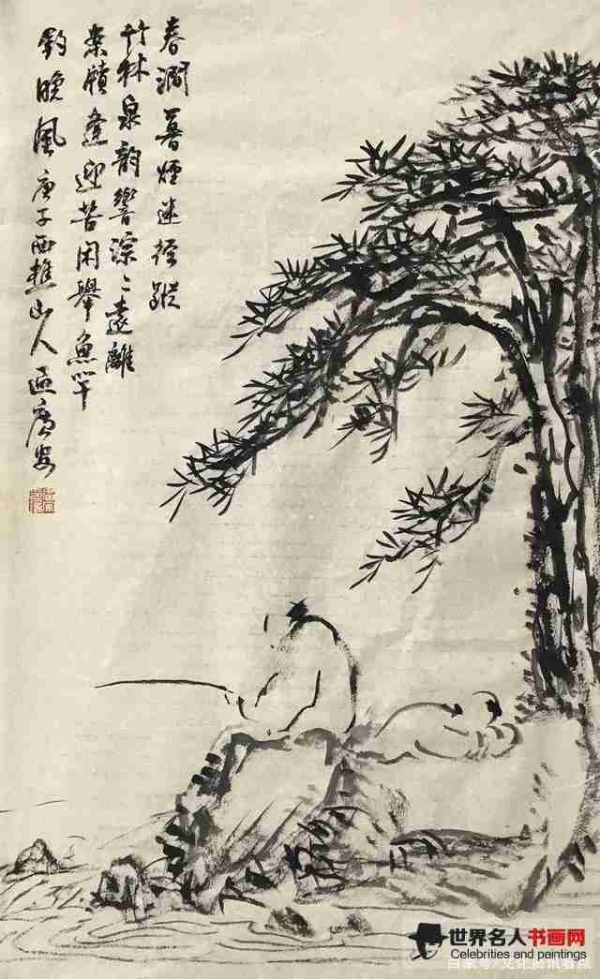 春澗暮煙迷徑蹤
竹林泉韻響淙〻遠離
案牘迎苦闲舉魚竿
釣晚風 庚子西樵山人 廣安
世界名人书画网
Celebrities and paintings